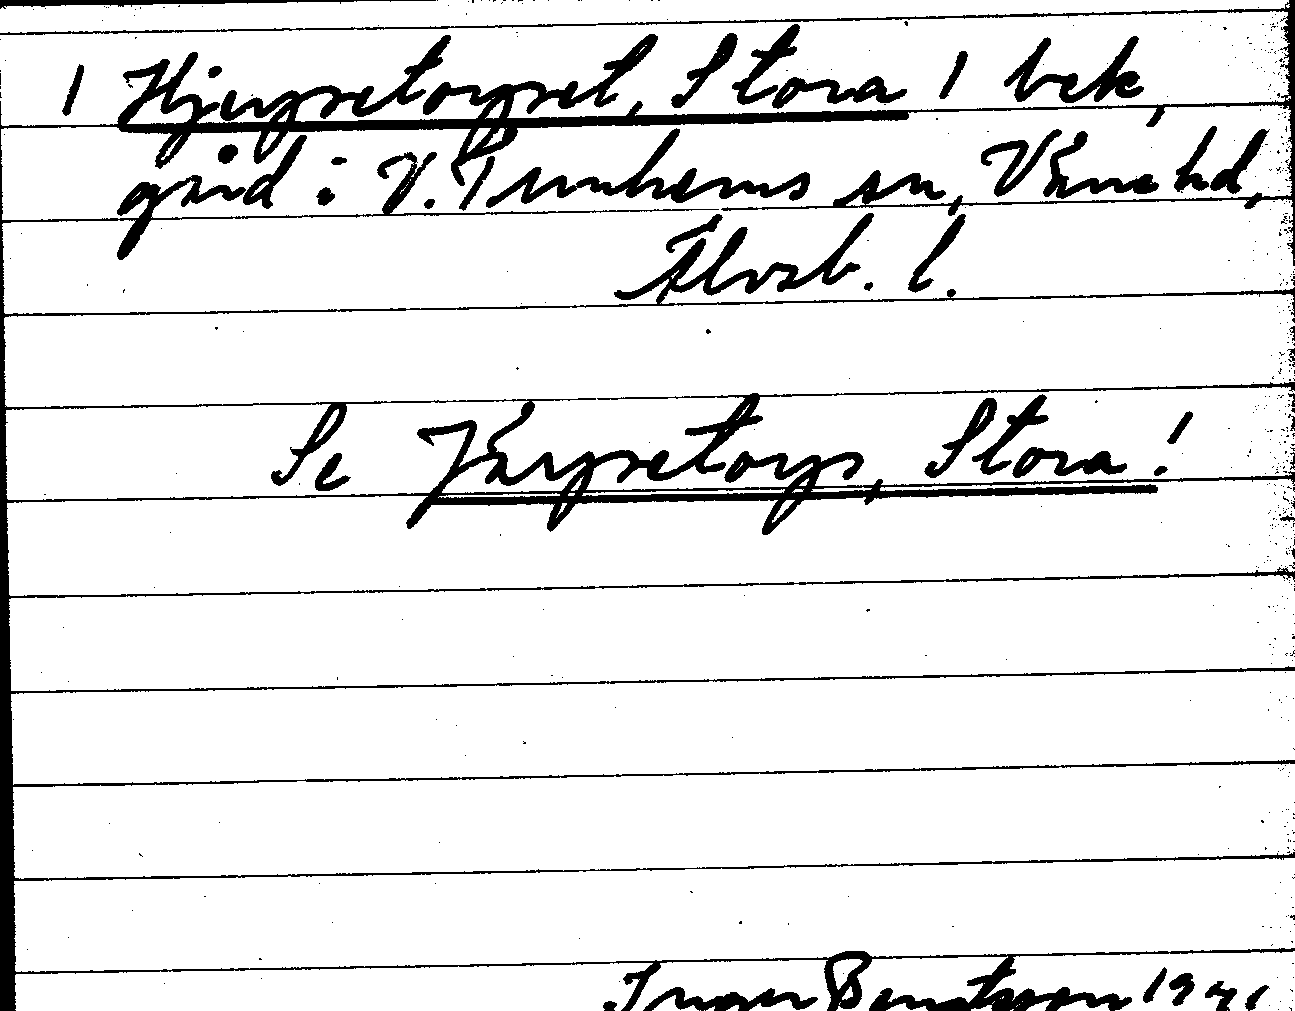 / Hjerpetorpet, Stora / bek,
gård i V. Tunhems sn, Väne hd,
Älvsb. l.
Se Järpetorp, Stora!
Bengtsson